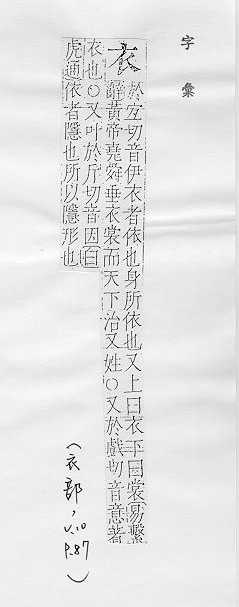 字彙
衣
於宜切音伊衣者依也身所依也又上曰衣下曰裳易繫
辭黃帝堯舜垂衣裳而天下治又姓〇又於戲切音意著
衣也〇又叶於斤切音因白
虎通依者隱也所以隱形也
(衣部, v.10
P.87)